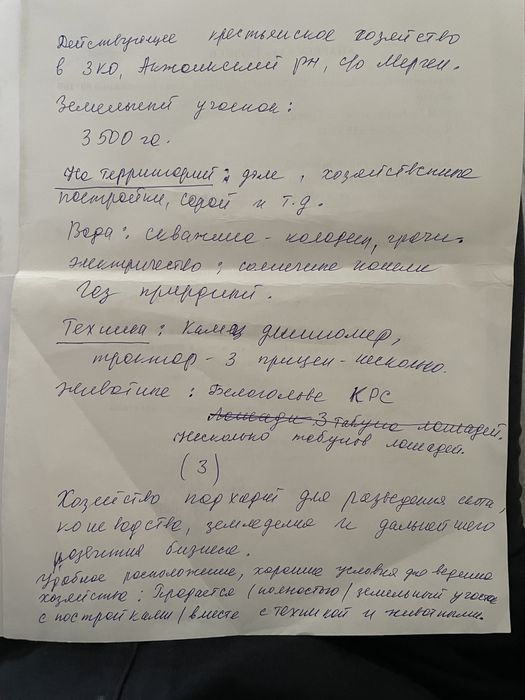 Действующее крестьянское хозяйство
в ЗКО, Акжаикский рн, с/о Мерген.
Земельный участок:
3500 га.
На территорий: дом, хозяйственные
постройки, сарай и т.д.
Вода: скважина - колодец,
электричество: солнечные панели
Газ природный.
Техника: Камаз длинномер,
трактор - 3 прицеп - несколько.
Животные: Белоголовые КРС
Лошади 3 табуна лошадей.
несколько табунов лошадей.
(3)
Хозяйство для разведения скота,
коневодства, земледелия и дальнейшего
развития бизнеса.
Удобное расположение, хорошие условия для ведения
хозяйство: Продается (полностью) земельный участок
с постройками/вместе с техникой и животными.